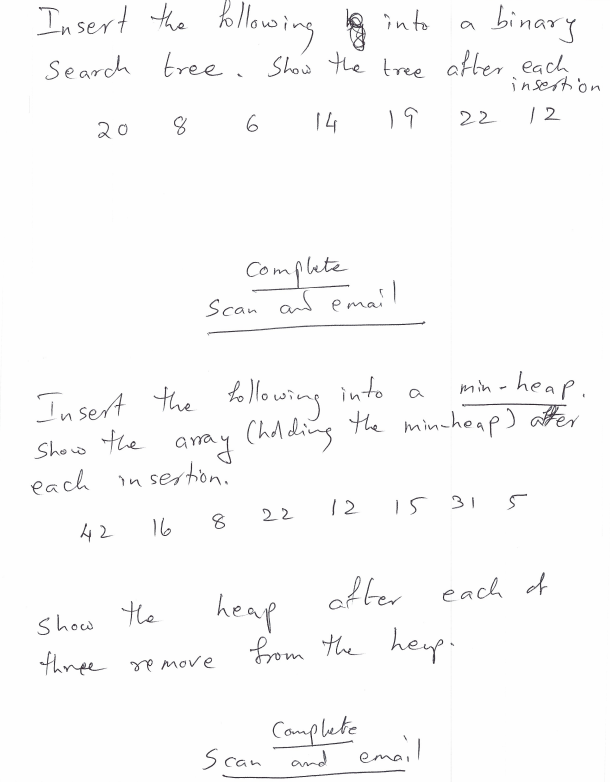 Insert the following into a binary
Search tree. Show the tree after each
insertion
20 8 6 14 19 22 12
Complete
Scan and email
Insert the following into a min-heap.
Show the array (holding the min-heap) after
each insertion.
42 16 8 22 12 15 31 5
Show the heap after each of
three remove from the heap.
Complete
Scan and email